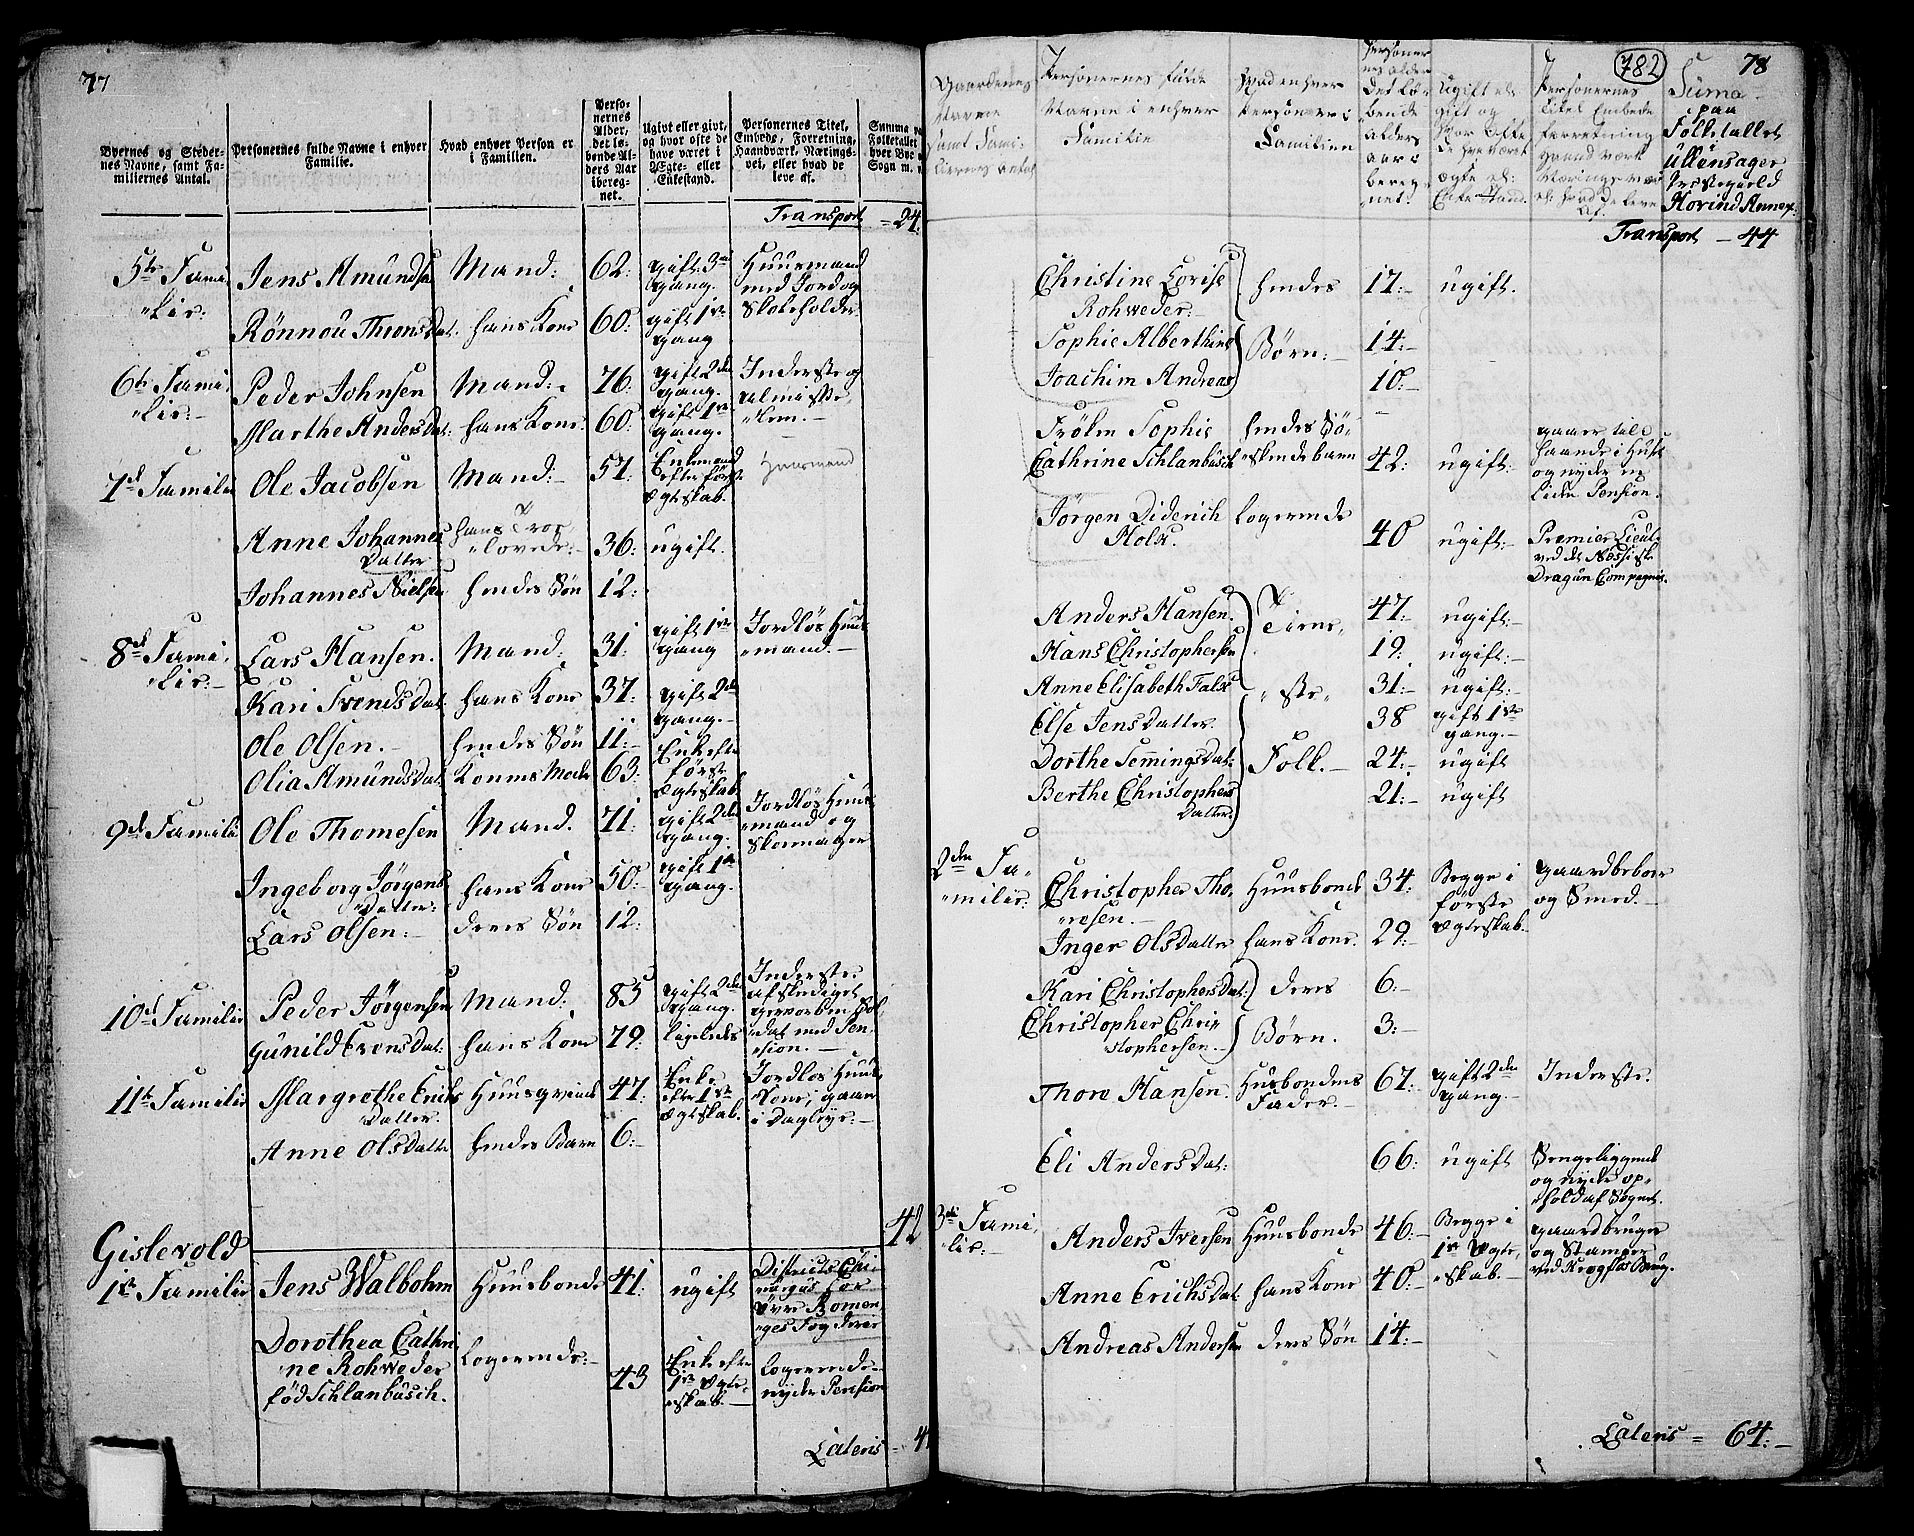 77
Byernes og Steder-
nes Navne, samt Fa-
miliernes Antal.
Personernes fulde Navne i enhver
Familie.
Hvad enhver Person er
i Familien.
Perso-
nernes
Alder,
det lø-
bende Al-
ders Aar
iberег-
net.
Ugivt eller givt,
og hvor ofte de
have været i
Ægte- eller
Enkestand.
Personernes Titel,
Embede, Forretning,
Haandværk, Nærings-
vei, eller hvad de
leve af.
Summa
Folketallet
hver Bye
Sogn
Transport = 24
5te Fami
"lie:
Jens Amunds
Mand:
62:
gift 3de
gang.
Huusmand
med Jord og
Skoleholder
Rönnou ThronsDat:
hans Kone
60:
gift 1ste
gang
6te Fami
"lie:
Peder Johnsen
Mand:
76:
gift 2den
gang.
Inderste og
almisse
"lem.
Marthe AndersDat:
hans Kone
60:
gift 1ste
gang.
7de Familie
Ole Jacobsen
Mand:
57:
Enkemand
efter første
Ægteskab.
Huusmand
Anne Johannes
Datter
hans Troe
"lovede:
36:
ugift.
Johannes Nielsen
hendes Søn
12:
8de Fami
"lie:
Lars Hansen.
Mand:
31:
gift 1ste
gang
Jordløs Huus
"mand.
Kari SvendsDat:
hans Kone
37:
gift 2den
gang.
Ole Olsen.
hendes Søn
11:
Olia AmundsDat:
Konens Moder
63:
Enke efter
første
Ægteskab
9de Familie
Ole Thomesen
Mand.
71:
gift 2den
gang.
Jordløs Huus
"mand og
Skomager
Ingeborg Jørgens
"Datter:
hans Kone
50:
gift 1ste
gang.
Lars Olsen:
deres Søn
12:
10de Familie
Peder Jørgensen
Mand:
85
gift 2den
gang.
Inderste
afskediget
gevorben Sol
"dat med Pen
"sion.
Gunild EvensDat:
hans Kone
79:
ligeledes
11te Familie
Margrethe Erichs
Datter.
Huusqvinde
47:
Enke
efter 1ste
Ægteskab.
Jordløs Huus
"kone, gaar
i Dagleye:
Anne OlsDatter
hendes Barn
6:
42
Gislevold
1te Familie
Jens Walbohm
Huusbonde
41:
ugift
Districts Chi
rurgus for
Øvre Romeri
"ges Fogderie
Dorothea Cathri
"ne Rohweder
fød Schlanbusch.
Logerende:
43
Enke efter
1ste Ægte
"skab.
Logerende
nyder Pension
Lateris = 4
782
78
Gaardenes
Navne
samt Fami
liernes Antal
Personernes fulde
Navne i enhver
Familie
Hvad enhver
Person er i
Familien
Personer
nes alder
det Lø-
bende
alders
aar i
bereg-
net.
Ugift el:
gift og
hvor ofte
de have været
ægte el:
Enke Stand.
Personernes
Titel Embede
Forretning
Haandværk
Nærings vei
el: hvad de leve
af.
Suma
paa
Folketallet
Ullensager
Præstegield
Hovind Annex:
Transport - 44
Christine Lovise
Rohweder:
hendes
17:
ugift.
Sophie Alberthine
Børn:
14:
Joachim Andreas
10:
Frölen Sophie
Cathrine Schlanbusch
hendes Sø
"skendebarn
42:
ugift:
gaaer til
Haande i Huset
og nyder en
liden Pension.
Jörgen Diderich
Holst.
Logerende
40
ugift:
Premier Lieut:
ved det Nessiske
Dragun Compagnie.
Anders Hansen.
Tiene,
47:
ugift:
Hans Christophersen
19:
ugift:
Anne Elisabeth Falk
"ste
31:
ugift:
Else JensDatter.
38
gift 1ste
gang.
Dorthe SemmingsDat:
Folk.
24:
ugift
Berthe Christophers
Datter.
21:
ugift
2den Fa-
"milie:
Christopher Tho,
"resen.
Huusbonde
34:
Begge i
første
Ægteskab.
Gaardbeboer
og Smed.
Inger OlsDatter
hans Kone.
29:
Kari ChristophersDat:
deres
6:
Christopher Chri
stophersen.
Børn.
3:
Thore Hansen.
Husbondens
Fader.
67:
gift 2den
gang.
Inderste.
Eli AndersDat:
66:
ugift
Sengeliggende
og nyder op-
"hold af Sognet.
3die Fami
"lie:
Anders Iversen
Huusbonde
46:
Begge i
1ste Ægte
"skab.
Gaardbruger
og Stamper
ved Krogfos Brug.
Anne ErichsDat:
hans Kone
40:
Andreas Andersen
deres Søn
14:
Lateris = 64: